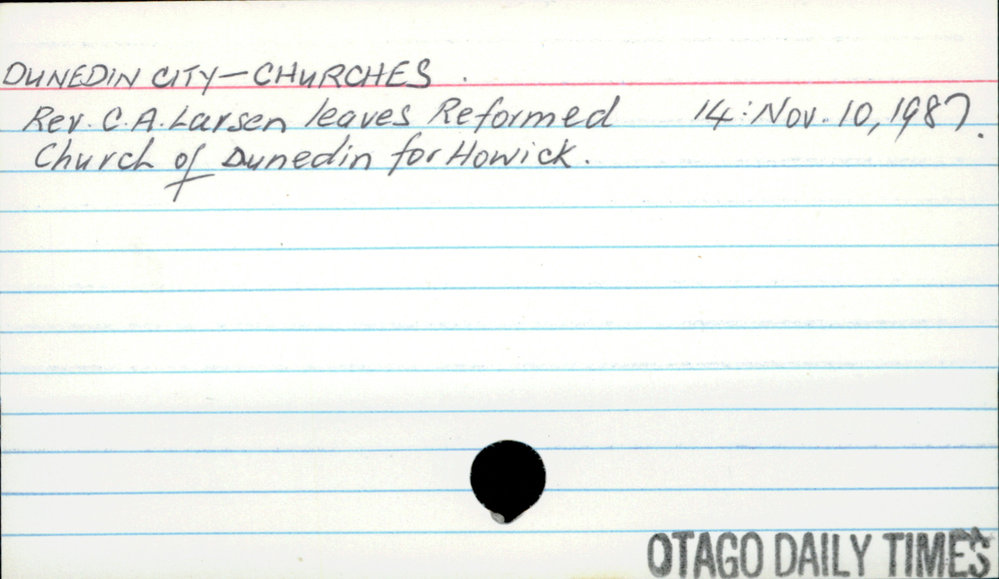 DUNEDIN CITY-CHURCHES.
Rev. C.A. Larsen leaves Reformed 14: Nov. 10, 1987.
Church of Dunedin for Howick.
OTAGO DAILY TIMES